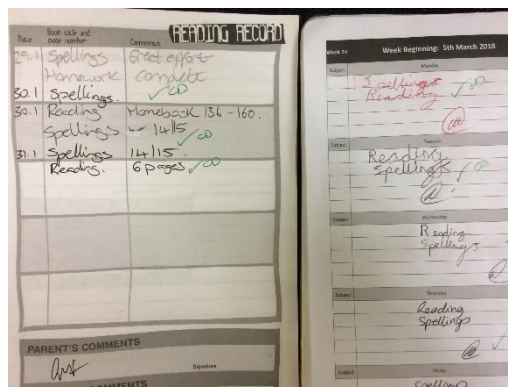 READING RECORD
Date Book title and page number Comments
29.1 Spellings Great effort
Homework complete
30.1 Spellings.
30.1 Reading Homebook 136-160.
Spellings 14/15
31.1 Spellings 14/15.
Reading. 6 pages
PARENT'S COMMENTS
Signature
COMMENTS
Week 24 Week Beginning: 5th March 2018
Subject Monday
Spellings
Reading
Subject Tuesday
Reading
Spellings
Subject Wednesday
Reading
Spellings
Subject Thursday
Reading
Spellings
Subject Friday
Spellings